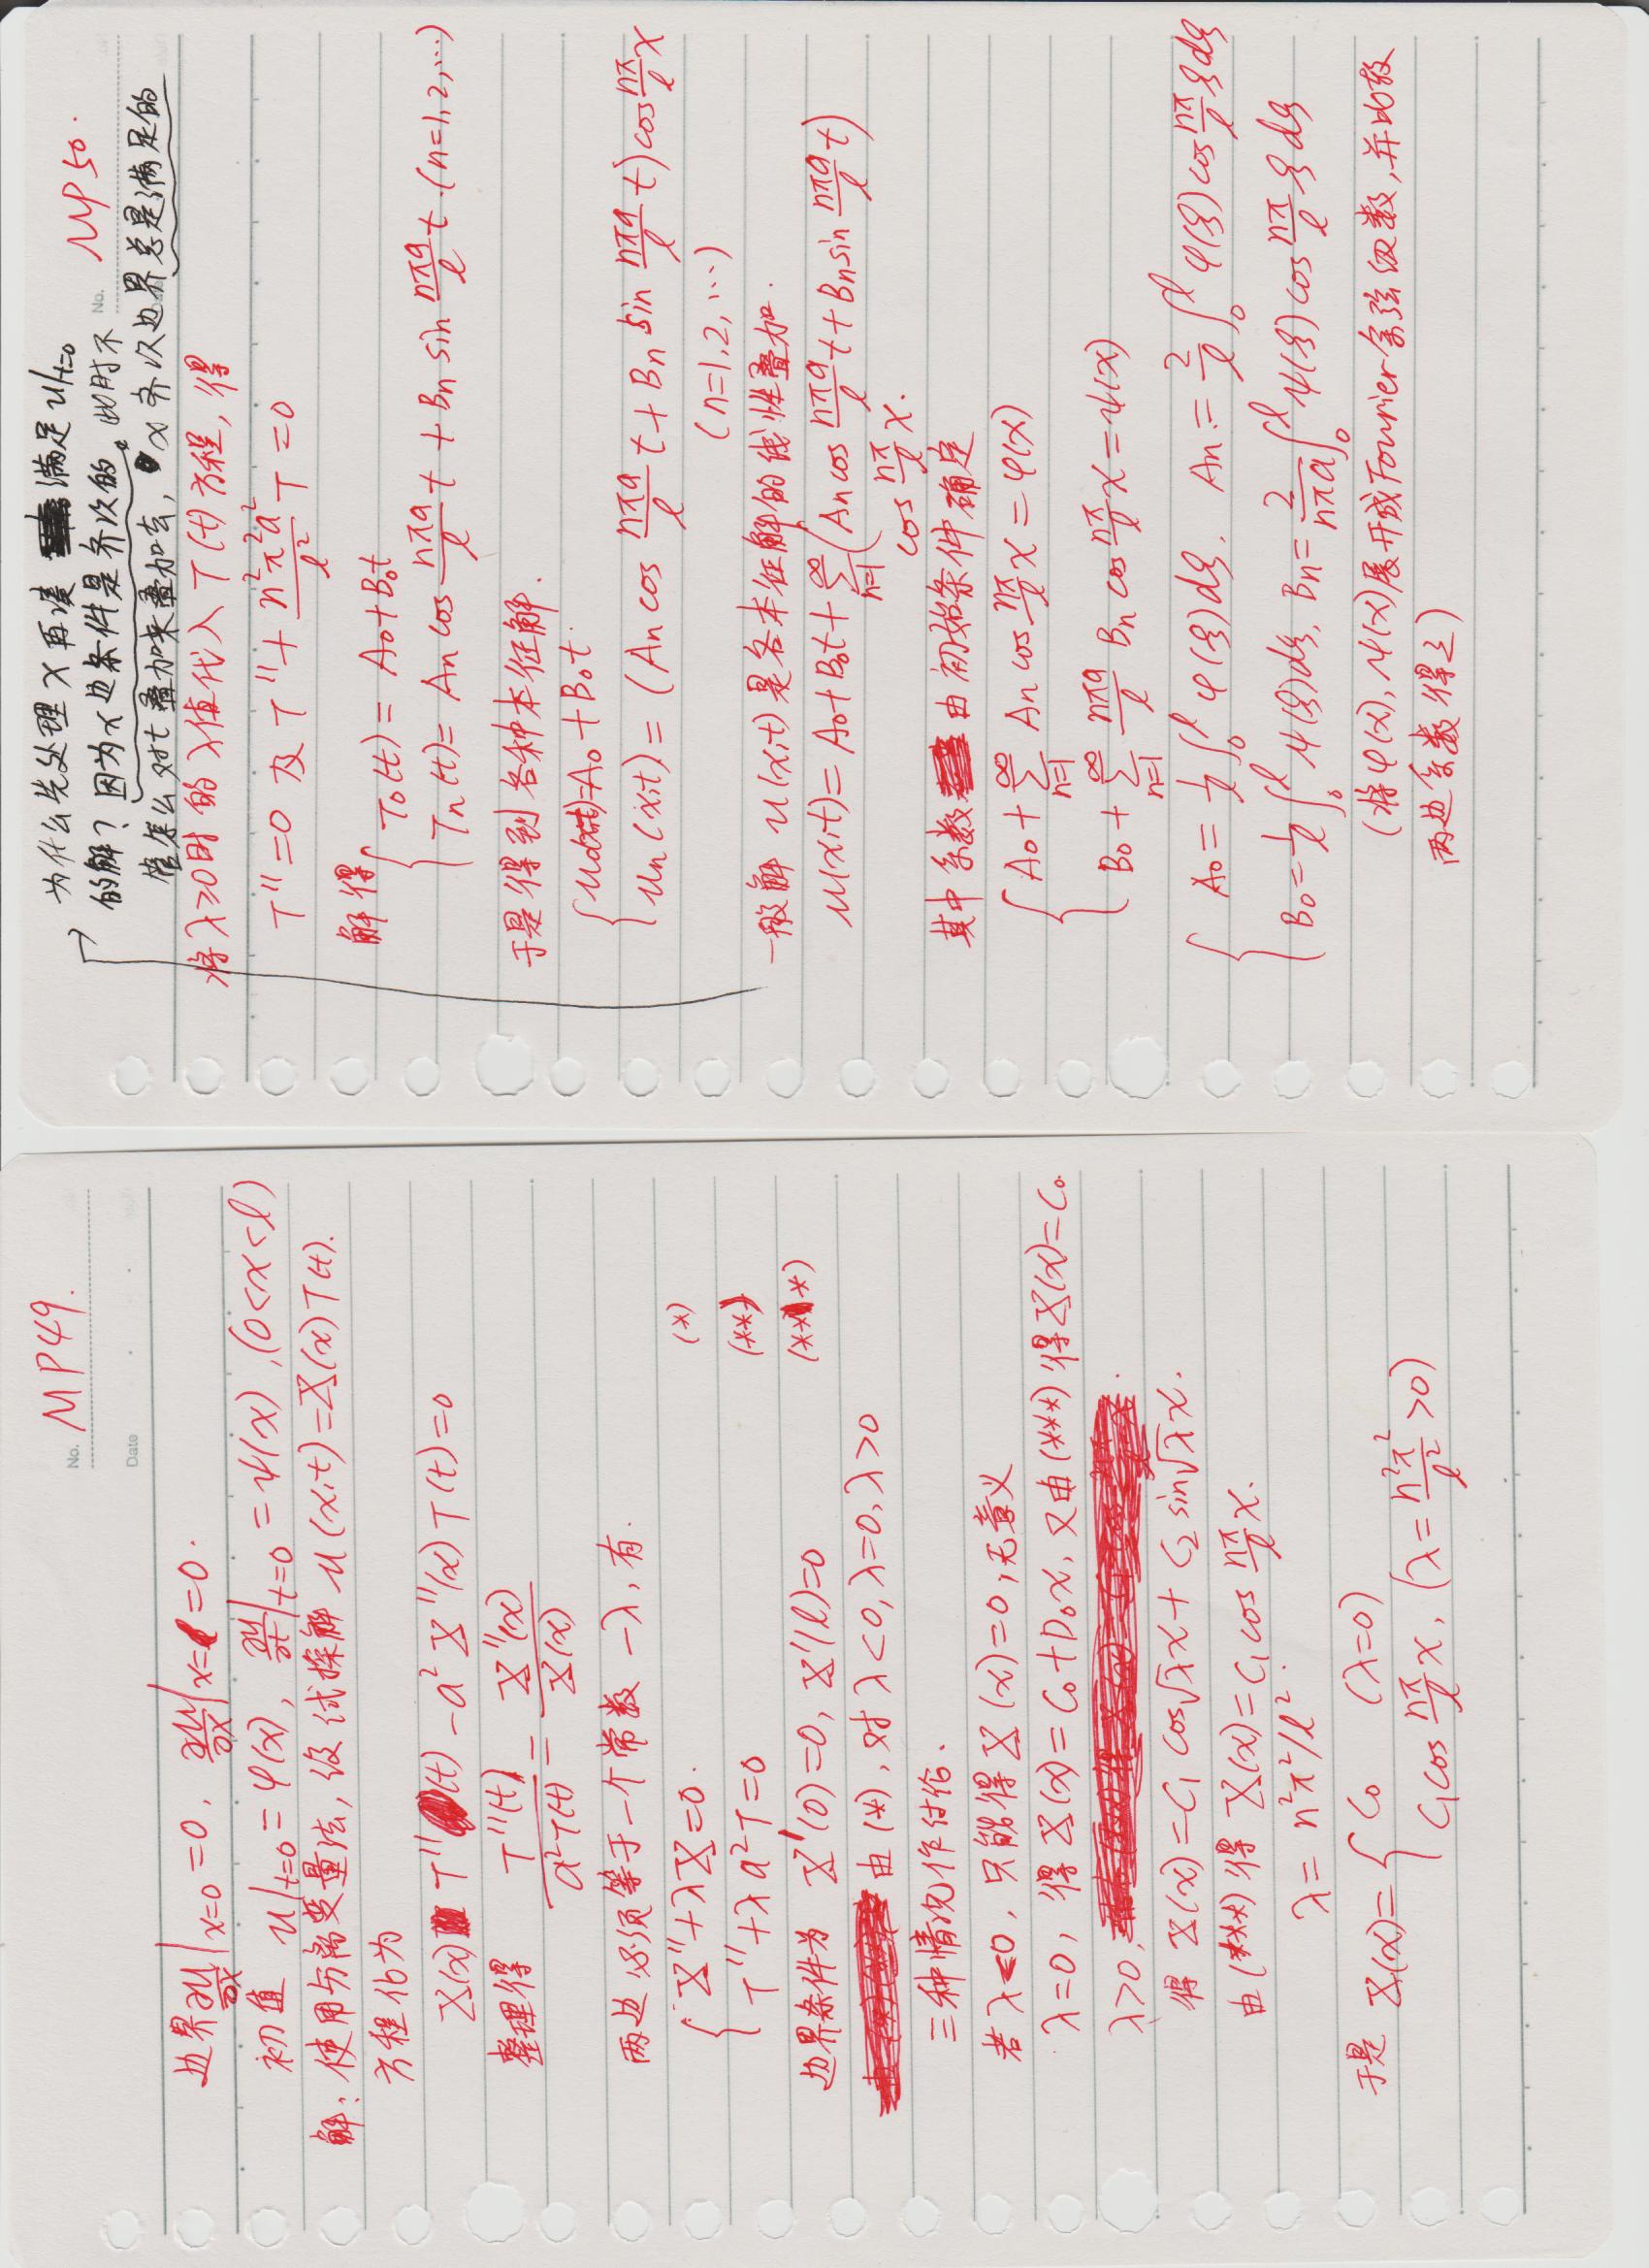 No. MP49.
Date
边界 ∂u/∂x|x=0 = 0, ∂u/∂x|x=l = 0.
初值 u|t=0 = φ(x), ∂u/∂t|t=0 = ψ(x), (0<x<l)
解: 使用分离变量法, 设试探解 u(x,t) = X(x)T(t).
方程化为
X(x) T''(t) - a² X''(x) T(t) = 0
整理得 T''(t)/a²T(t) = X''(x)/X(x)
两边必须等于一个常数 -λ, 有.
X'' + λX = 0. (*)
T'' + λa²T = 0 (**)
边界条件为 X'(0)=0, X'(l)=0 (***)
由(*), 对 λ<0, λ=0, λ>0
三种情况作讨论.
若 λ<0, 只能得 X(x)=0, 无意义
λ=0, 得 X(x) = C₀+D₀x, 又由(***) 得 X(x)=C₀.
λ>0,
得 X(x) = C₁ cos√λx + C₂ sin√λx.
由(***) 得 X(x) = C₁ cos nπ/l x.
λ = n²π²/l².
于是 X(x) = { C₀ (λ=0)
C₁ cos nπ/l x, (λ = n²π²/l² >0)
为什么先处理x再凑 满足 u|t=0
No. MP50.
的解? 因为x边条件是齐次的。此时不
管怎么对t叠加来叠加去, x齐次边界总是满足的
将λ≥0时的λ值代入T(t)方程, 得
T''=0 及 T'' + n²π²a²/l² T = 0
解得 { T₀(t) = A₀+B₀t
Tn(t) = An cos nπa/l t + Bn sin nπa/l t. (n=1,2,…)
于是得到各种本征解.
u₀(x,t)=A₀+B₀t.
un(x,t) = (An cos nπa/l t + Bn sin nπa/l t) cos nπ/l x
(n=1,2,…)
一般解 u(x,t) 是各本征解的线性叠加.
u(x,t) = A₀+B₀t + ∑n=1^∞ (An cos nπa/l t + Bn sin nπa/l t)
cos nπ/l x.
其中系数 由初始条件确定
A₀ + ∑n=1^∞ An cos nπ/l x = φ(x)
B₀ + ∑n=1^∞ nπa/l Bn cos nπ/l x = ψ(x)
A₀ = 1/l ∫₀^l φ(ξ)dξ, An = 2/l ∫₀^l φ(ξ) cos nπ/l ξ dξ
B₀ = 1/l ∫₀^l ψ(ξ)dξ, Bn = 2/nπa ∫₀^l ψ(ξ) cos nπ/l ξ dξ
(将φ(x), ψ(x)展开成Fourier余弦级数, 并比较
两边系数得之)